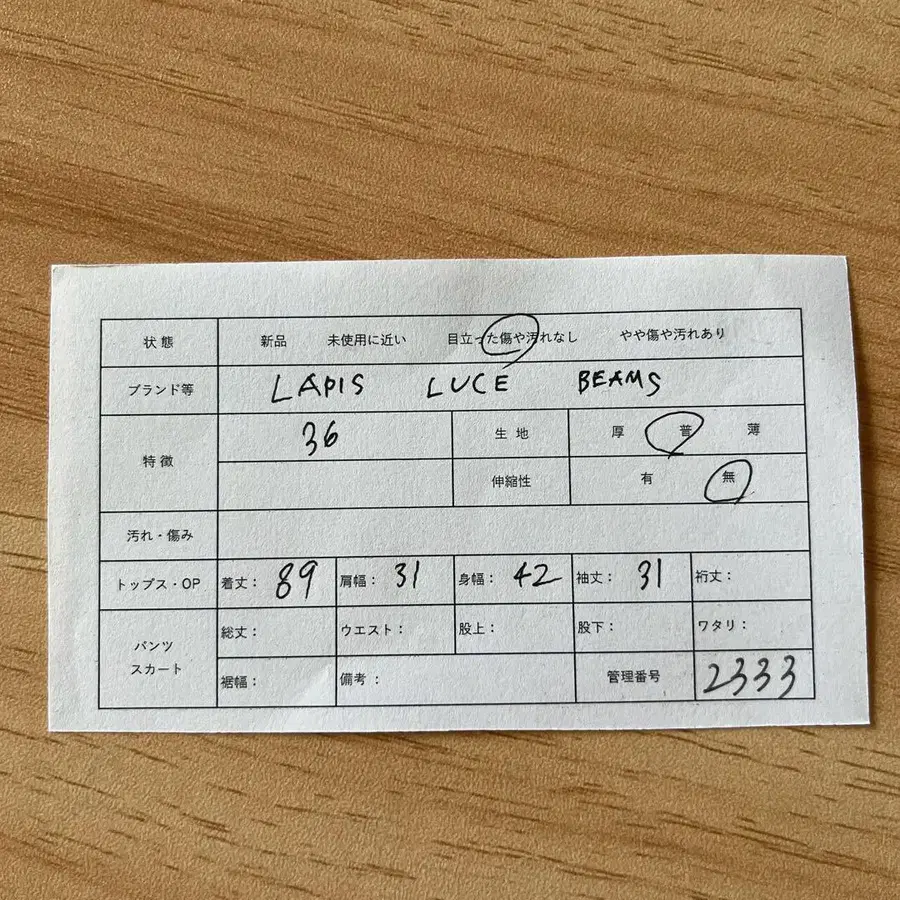 状態 新品 未使用に近い 目立った傷や汚れなし やや傷や汚れあり
ブランド等 LAPIS LUCE BEAMS
特徴 36 生地 厚 普 薄
伸縮性 有 無
汚れ・傷み
トップス・OP 着丈: 89 肩幅: 31 身幅: 42 袖丈: 31 裄丈:
パンツ スカート 総丈: ウエスト: 股上: 股下: ワタリ:
裾幅: 備考: 管理番号 2333